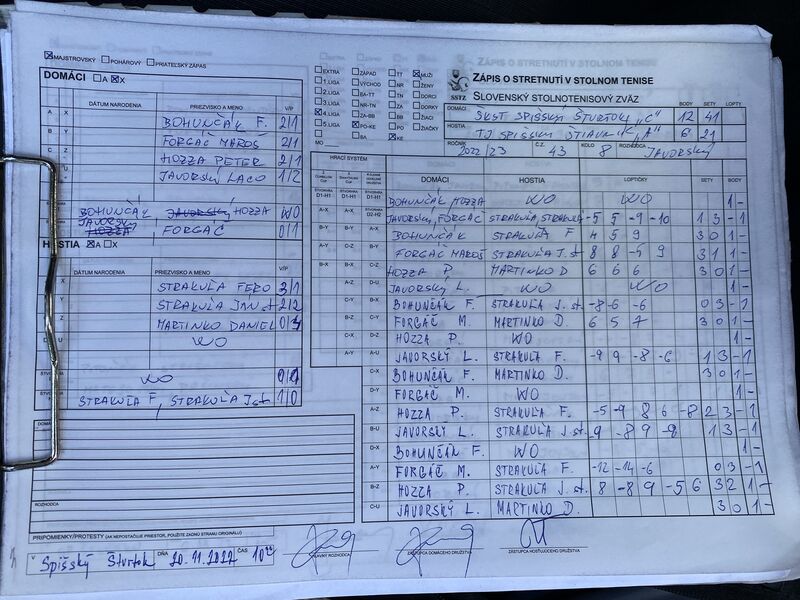 MAJSTROVSKÝ POHÁROVÝ PRIATEĽSKÝ ZÁPAS
DOMÁCI A X
DÁTUM NARODENIA PRIEZVISKO A MENO V/P
A X BOHUNČÁK F. 2/1
B Y FORGÁČ MAROŠ 2/1
C Z HOZZA PETER 2/1
JAVORSKÝ LACO 1/2
BOHUNČÁK HOZZA WO
JAVORSKÝ FORGÁČ 0/1
HOSTIA A X
DÁTUM NARODENIA PRIEZVISKO A MENO V/P
STRAKUĽA FERO 3/1
STRAKUĽA JÁN st 2/2
MARTINKO DANIEL
WO
WO
STRAKUĽA F, STRAKUĽA J.st 1/0
ROZHODCA
PRIPOMIENKY/PROTESTY (AK NEPOSTAČUJE PRIESTOR, POUŽITE ZADNÚ STRANU ORIGINÁLU)
V Spišský Štvrtok DŇA 20.11.2022 ČAS 10⁰⁰
HLAVNÝ ROZHODCA
ZÁSTUPCA DOMÁCEHO DRUŽSTVA
ZÁSTUPCA HOSŤUJÚCEHO DRUŽSTVA
EXTRA ZÁPAD TT MUŽI
1.LIGA VÝCHOD NR ŽENY
2.LIGA BA-TT TN DORCI
3.LIGA NR-TN ZA DORKY
4.LIGA ZA-BB BB ŽIACI
5.LIGA PO-KE PO ŽIAČKY
MO KE
SSTZ
ZÁPIS O STRETNUTÍ V STOLNOM TENISE
SLOVENSKÝ STOLNOTENISOVÝ ZVÄZ
BODY SETY LOPTY
DOMÁCI ŠKST SPIŠSKÝ ŠTVRTOK "C" 12 41
HOSTIA TJ SPIŠSKÝ ŠTIAVNIK "A" 6 21
ROČNÍK 2022/23 Č.Z. 43 KOLO 8 ROZHODCA JAVORSKÝ
HRACÍ SYSTÉM DOMÁCI HOSTIA LOPTIČKY SETY BODY
BOHUNČÁK HOZZA WO WO 1-
JAVORSKÝ, FORGÁČ STRAKUĽA, STRAKUĽA -5 5 -9 -10 1 3 -1
BOHUNČÁK STRAKUĽA F 4 5 9 3 0 1-
FORGÁČ MAROŠ STRAKUĽA J.st 8 8 -5 9 3 1 1-
HOZZA P. MARTINKO D 6 6 6 3 0 1-
JAVORSKÝ L. WO WO 1-
BOHUNČÁK F. STRAKUĽA J. st -8 -6 -6 0 3 -1
FORGÁČ M. MARTINKO D. 6 5 7 3 0 1-
HOZZA P. WO 1-
JAVORSKÝ L. STRAKUĽA F. -9 9 -8 -6 1 3 -1
BOHUNČÁK F. MARTINKO D. 3 0 1-
FORGÁČ M. WO 1-
A-Z HOZZA P. STRAKUĽA F. -5 -9 8 6 -8 2 3 -1
B-U JAVORSKÝ L. STRAKUĽA J. st. -9 -8 9 -8 1 3 -1
D-X BOHUNČÁK F. WO 1-
A-Y FORGÁČ M. STRAKUĽA F. -12 -14 -6 0 3 -1
B-Z HOZZA P. STRAKUĽA J. st. 8 -8 9 -5 6 3 2 1-
C-U JAVORSKÝ L. MARTINKO D. 3 0 1-